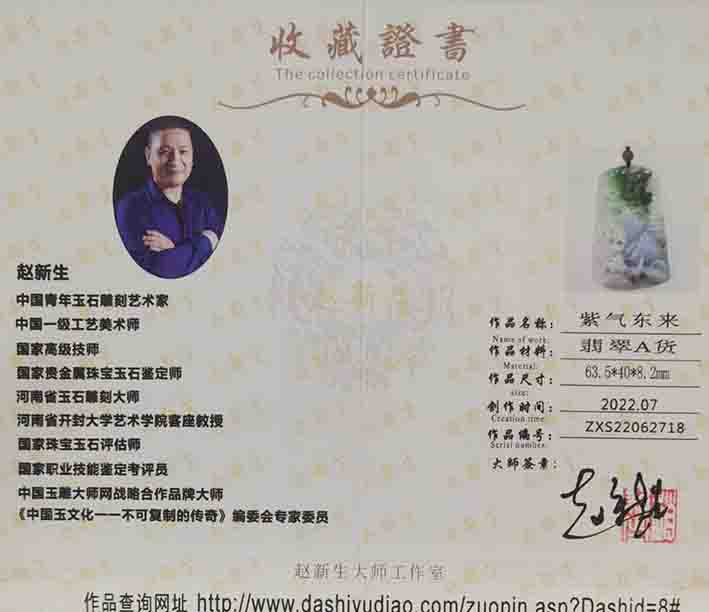 收藏證書
The collection certificate
赵新生
中国青年玉石雕刻艺术家
中国一级工艺美术师
国家高级技师
国家贵金属珠宝玉石鉴定师
河南省玉石雕刻大师
河南省开封大学艺术学院客座教授
国家珠宝玉石评估师
国家职业技能鉴定考评员
中国玉雕大师网战略合作品牌大师
《中国玉文化一一不可复制的传奇》编委会专家委员
作品名称: 紫气东来
Name of work:
作品材料: 翡翠A货
Material:
作品尺寸: 63.5*40*8.2mm
size:
创作时间: 2022.07
Creation time:
作品编号: ZXS22062718
Serial number:
大师签章:
赵新生
赵新生大师工作室
作品查询网址 http://www.dashiyudiao.com/zuopin.asp?Dashid=8#